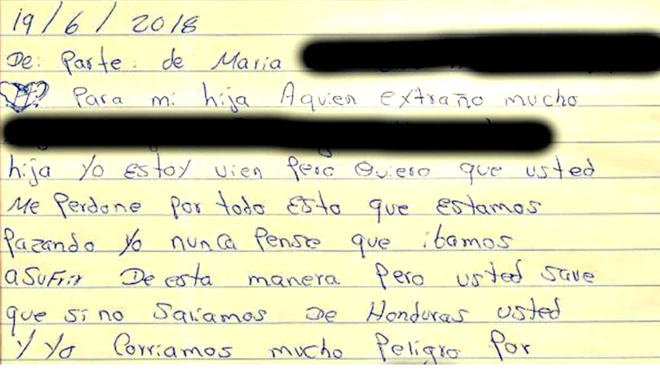 19/6/2018
De: Parte: de Maria
Para mi hija Aquien extraño mucho
hija Yo Estoy vien pero Quiero que usted
Me perdone por todo Esto que Estamos
Pazando Yo nunca Pense que ibamos
asufrir De esta manera Pero usted save
que si no Saliamos De Honduras usted
Y Yo Corriamos mucho Peligro Por